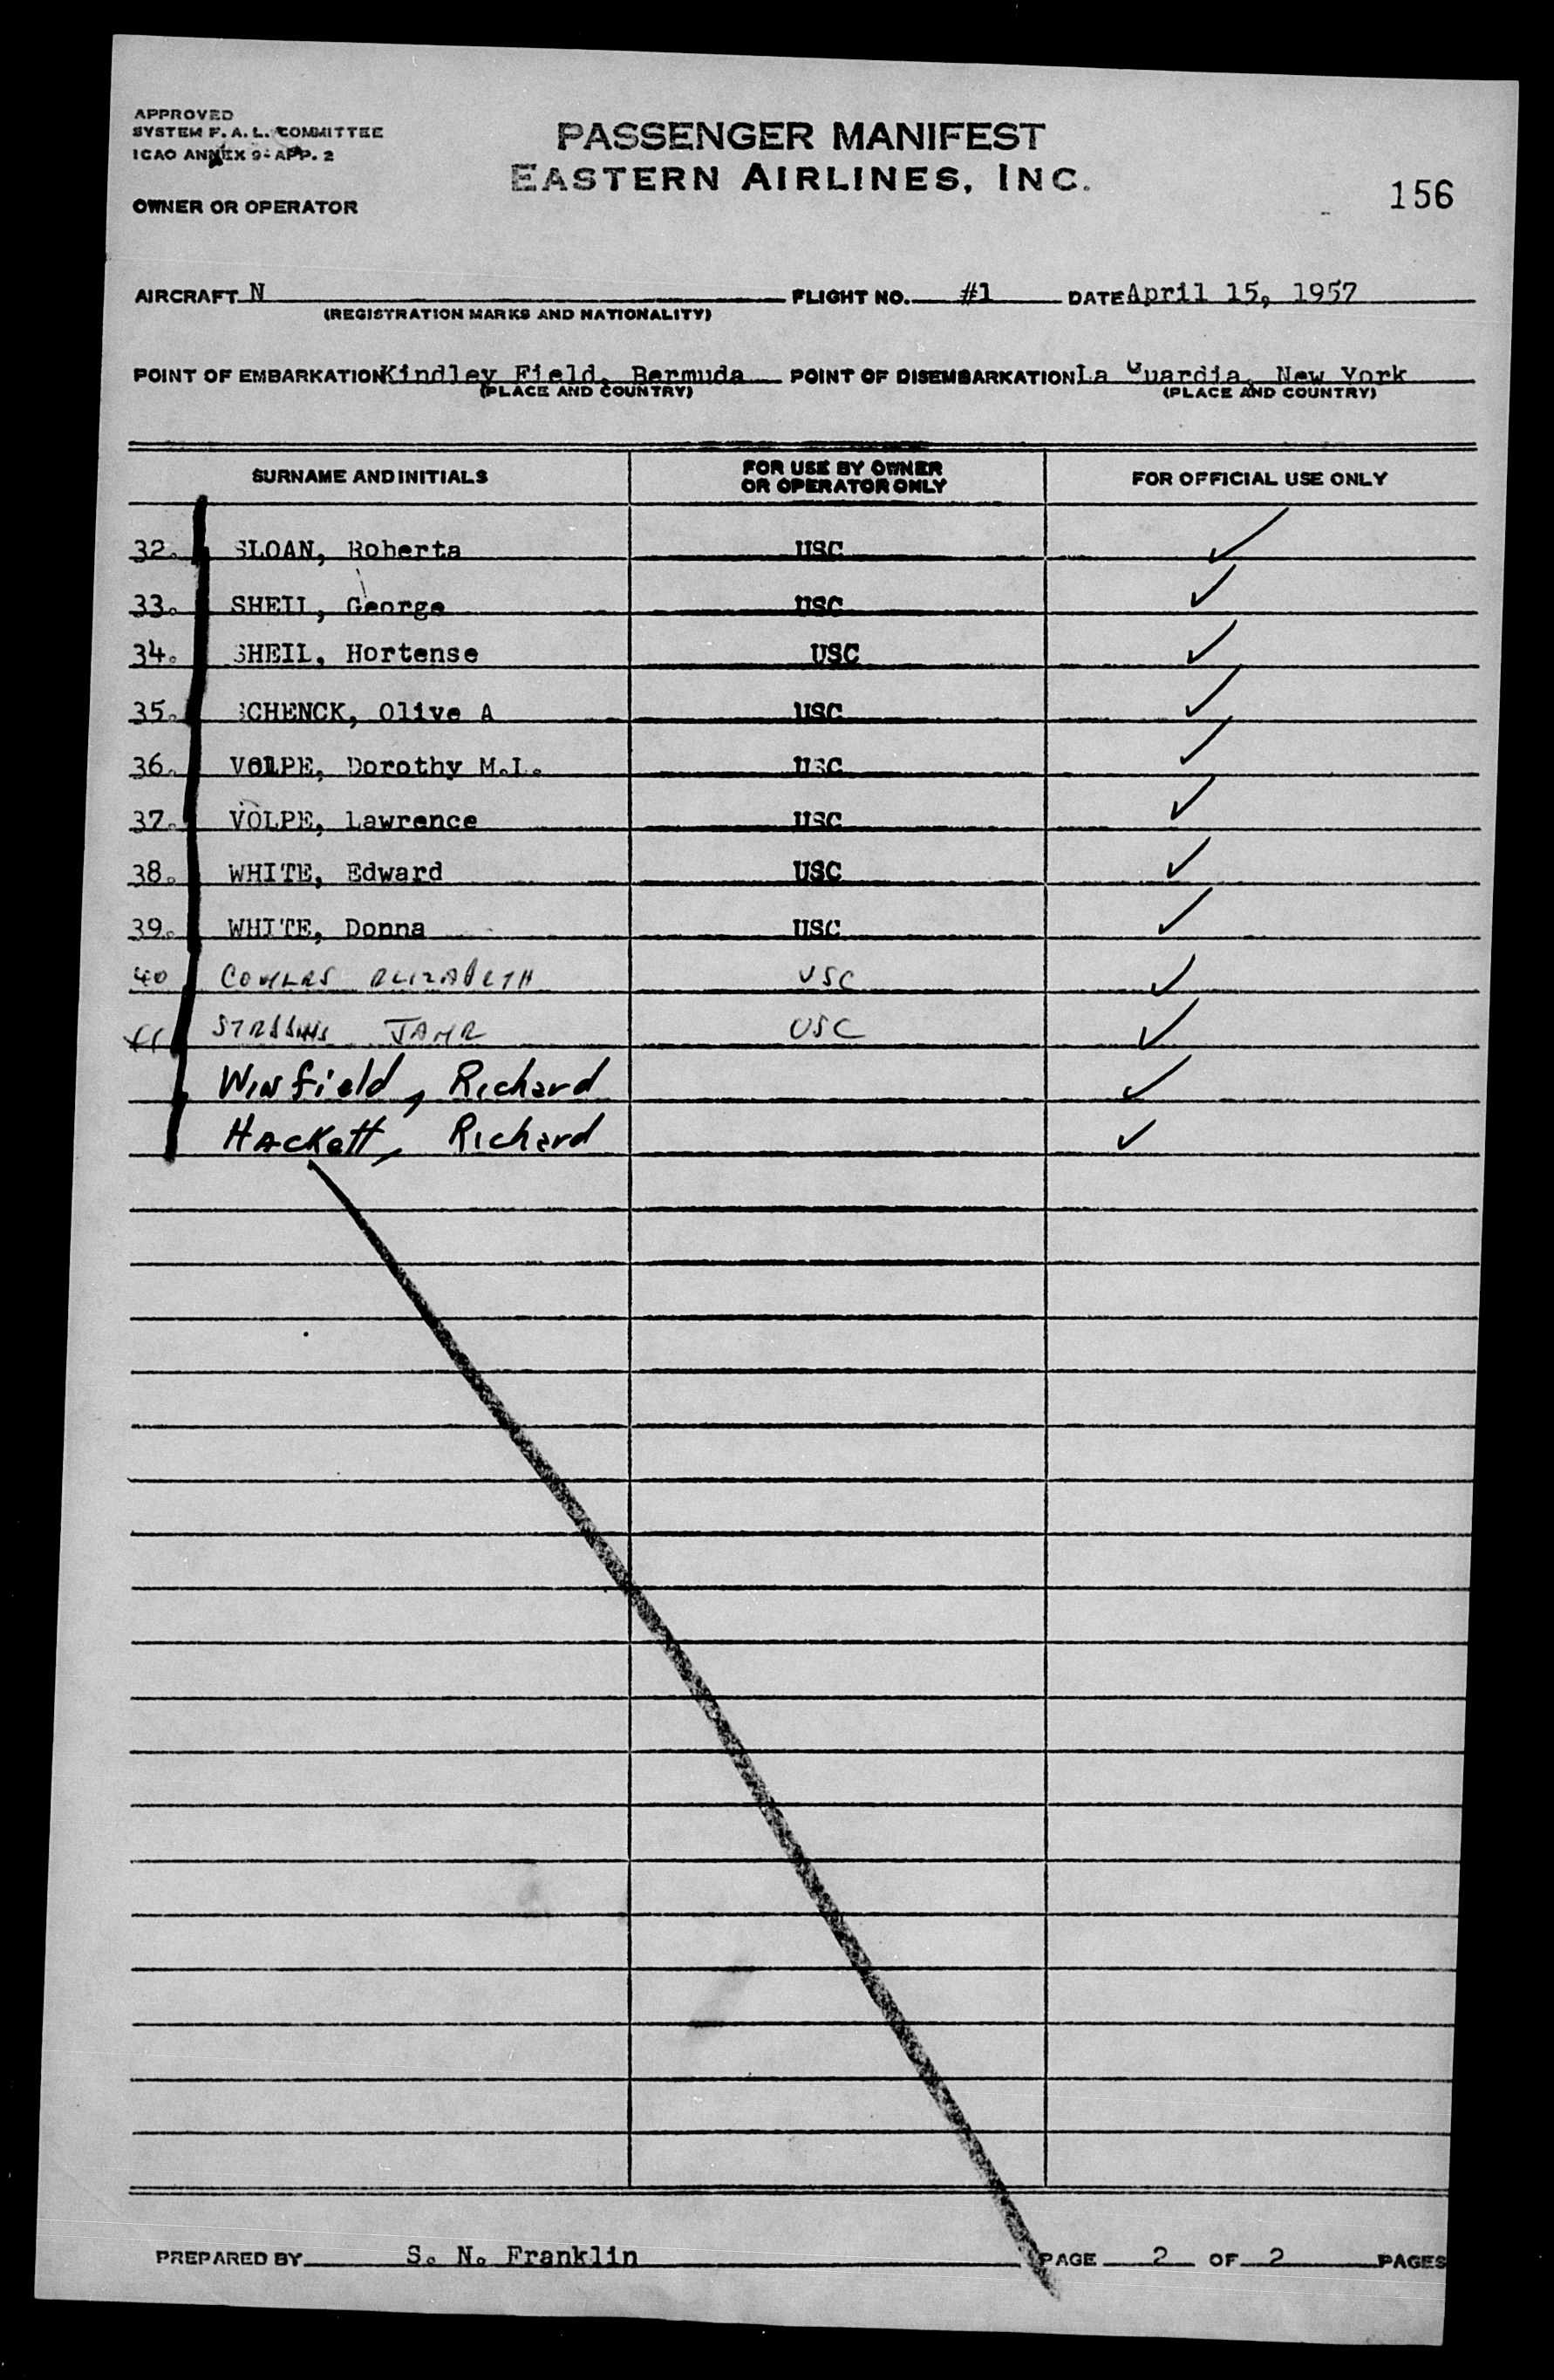 APPROVED
SYSTEM F. A. L. COMMITTEE
ICAO ANNEX 9- APP. 2
PASSENGER MANIFEST
EASTERN AIRLINES, INC.
156
OWNER OR OPERATOR
AIRCRAFT N FLIGHT NO. #1 DATE April 15, 1957
(REGISTRATION MARKS AND NATIONALITY)
POINT OF EMBARKATION Kindley Field, Bermuda POINT OF DISEMBARKATION La Guardia, New York
(PLACE AND COUNTRY) (PLACE AND COUNTRY)
SURNAME AND INITIALS FOR USE BY OWNER OR OPERATOR ONLY FOR OFFICIAL USE ONLY
32. SLOAN, Roberta USC ✓
33. SHEIL, George USC ✓
34. SHEIL, Hortense USC ✓
35. SCHENCK, Olive A USC ✓
36. VOLPE, Dorothy M.L. USC ✓
37. VOLPE, Lawrence USC ✓
38. WHITE, Edward USC ✓
39. WHITE, Donna USC ✓
40 ELIZABETH USC ✓
41 USC ✓
Winfield, Richard ✓
Hackett, Richard ✓
PREPARED BY S. N. Franklin PAGE 2 OF 2 PAGES